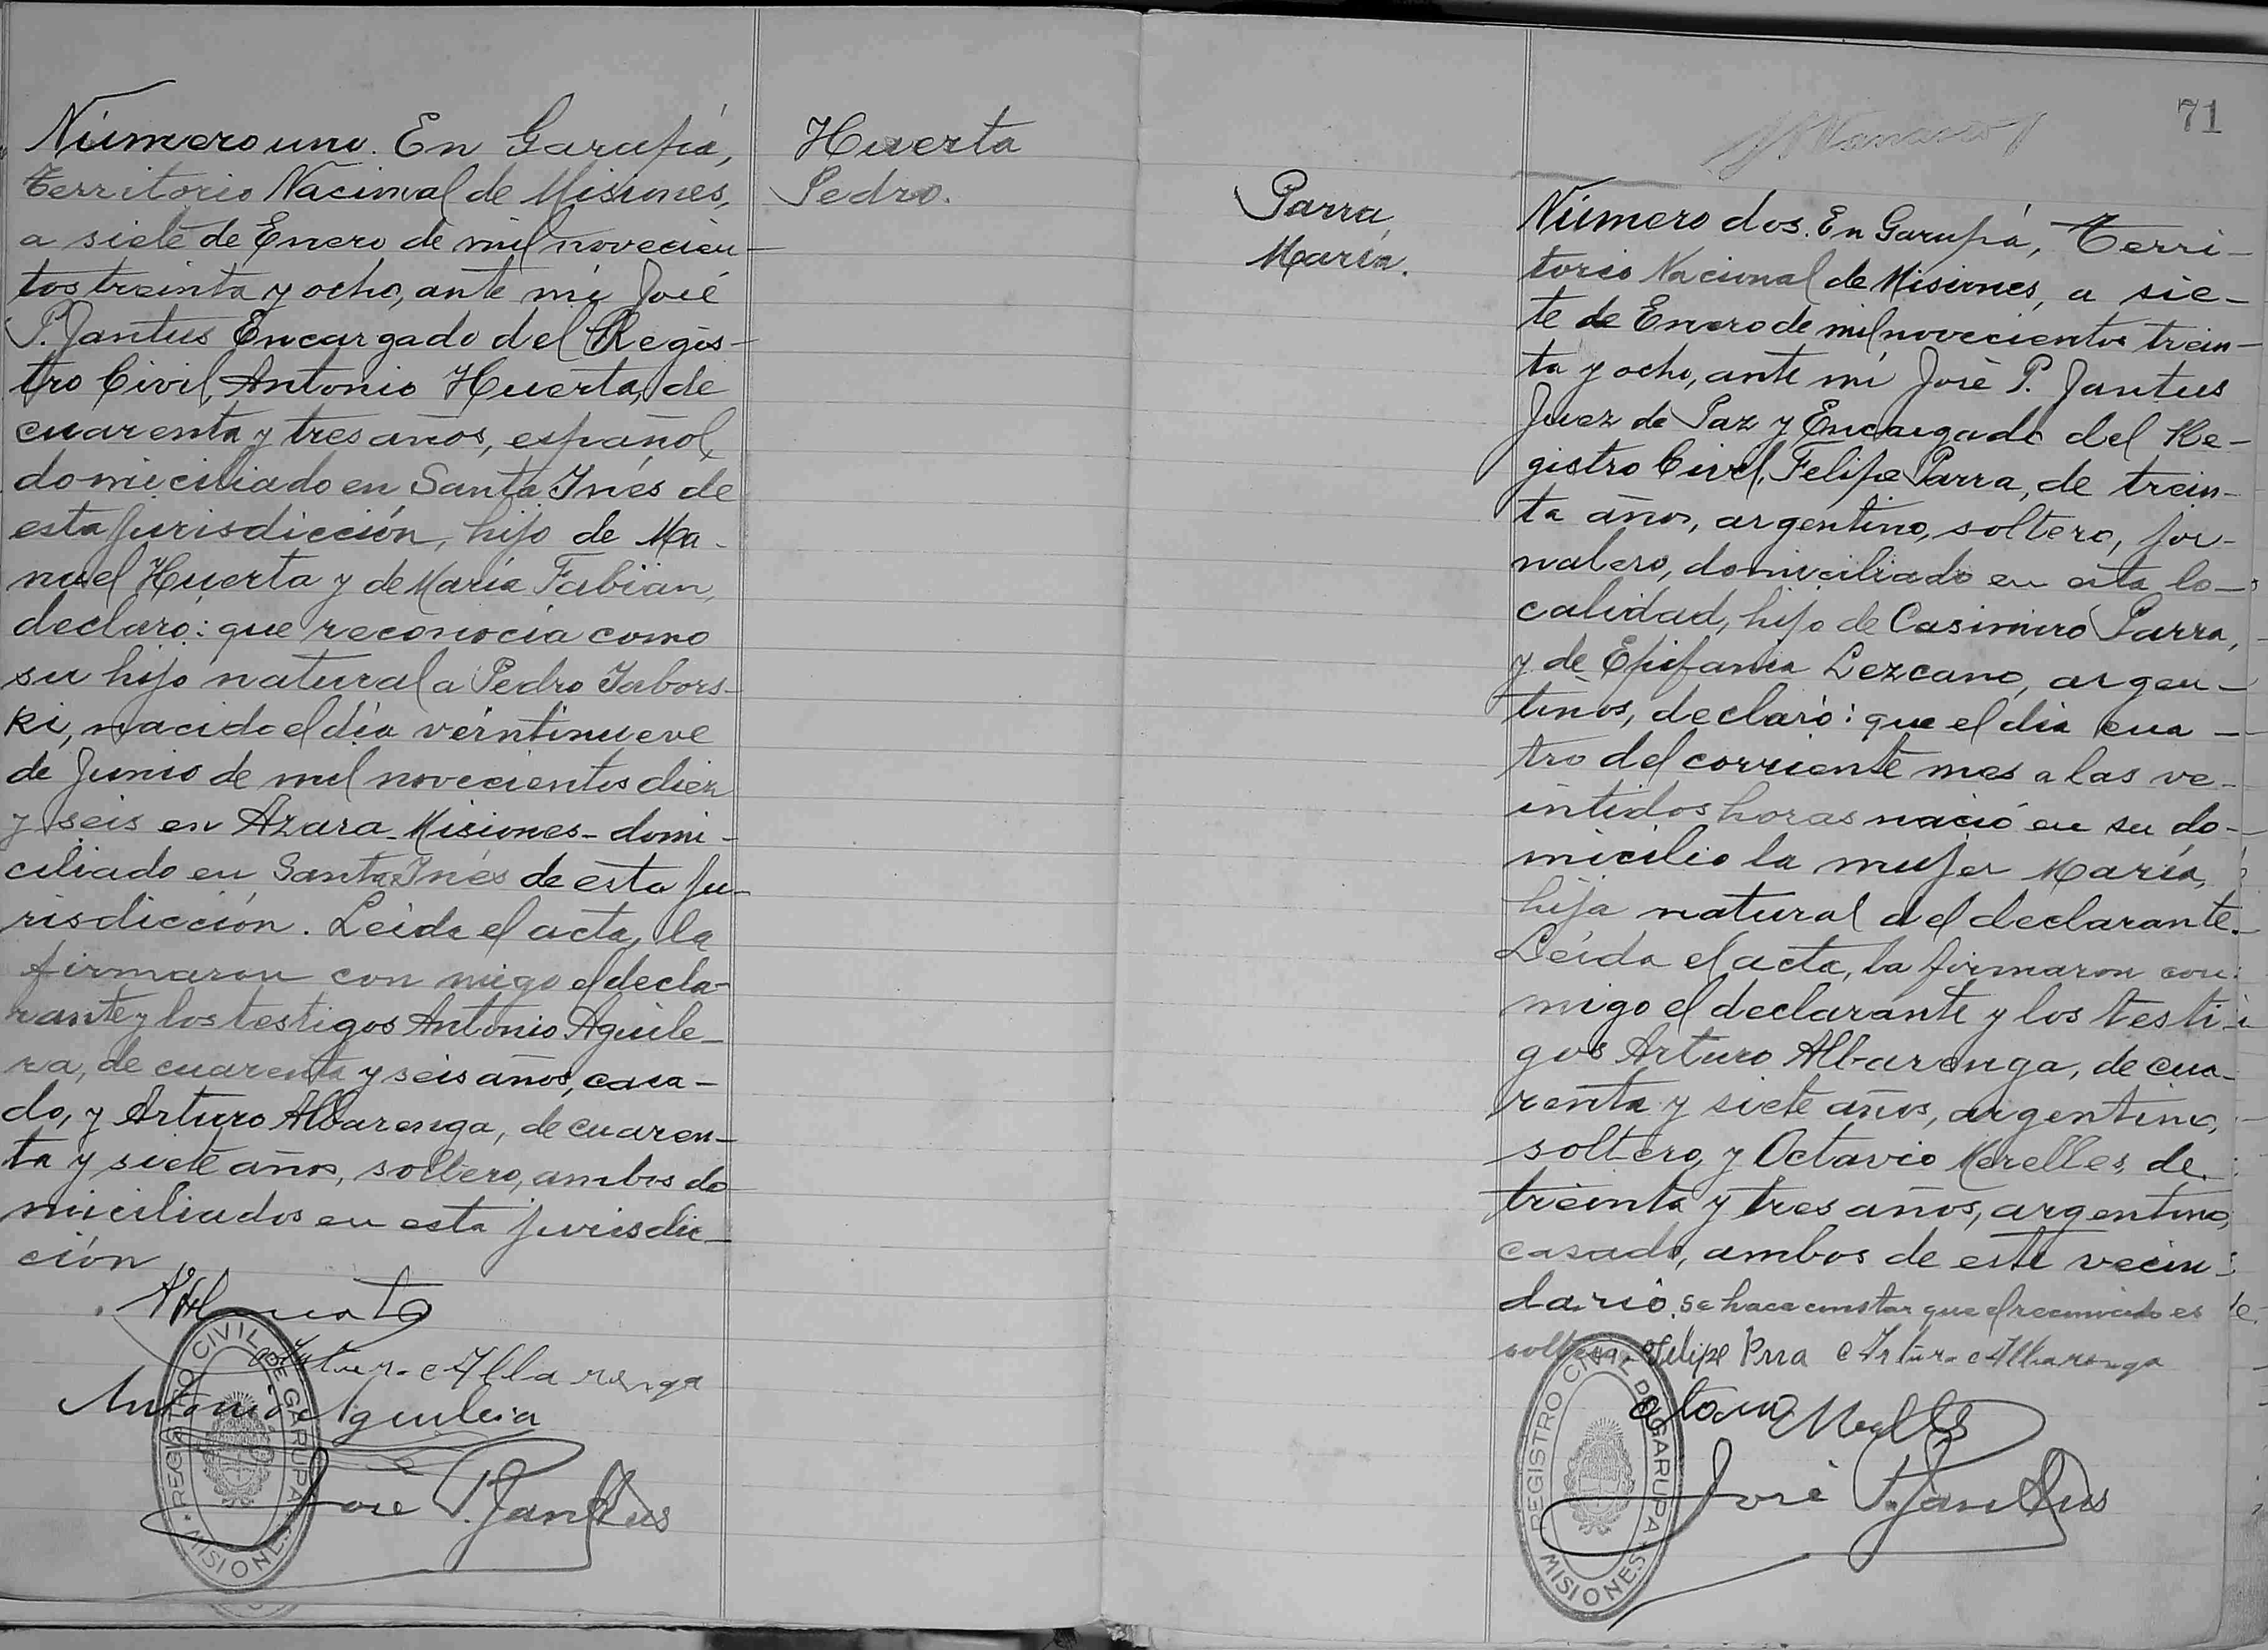 Número uno. En Garupá,
territorio Nacional de Misiones,
a siete de Enero de mil novecien-
tos treinta y ocho, ante mí José
P. Jantus Encargado del Regis-
tro Civil, Antonio Huerta, de
cuarenta y tres años, español,
domiciliado en Santa Inés de
esta Jurisdicción, hijo de Ma-
nuel Huerta y de María Fabián,
declaró: que reconocía como
su hijo natural a Pedro Jabors-
ki, nacido el día veintinueve
de Junio de mil novecientos diez
y seis en Azara - Misiones - domi-
ciliado en Santa Inés de esta Ju-
risdicción. Leída el acta, la
firmaron con migo el decla-
rante y los testigos Antonio Aguile-
ra, de cuarenta y seis años, casa-
do, y Arturo Albarenga, de cuaren-
ta y siete años, soltero, ambos do
miciliados en esta jurisdic-
ción
Arturo Albarenga
Antonio Aguilera
José P. Jantus
REGISTRO CIVIL DE GARUPA
MISIONES
Huerta
Pedro.
71
Parra,
María.
Número dos. En Garupá, Terri-
torio Nacional de Misiones, a sie-
te de Enero de mil novecientos trein-
ta y ocho, ante mí José P. Jantus
Juez de Paz y Encargado del Re-
gistro Civil, Felipe Parra, de trein-
ta años, argentino, soltero, jor-
nalero, domiciliado en esta lo-
calidad, hijo de Casimiro Parra,
y de Epifania Lezcano, argen-
tinos, declaró: que el día cua-
tro del corriente mes a las ve-
intidos horas nació en su do-
micilio la mujer María,
hija natural del declarante.
Leída el acta, la firmaron con
migo el declarante y los testi-
gos Arturo Albarenga, de cua-
renta y siete años, argentino,
soltero, y Octavio Merelles, de
treinta y tres años, argentino,
casado, ambos de este vecin-
dario. Se hace constar que el reconocido es
soltero. Felipe Prra Arturo Albarenga
José P. Jantus
REGISTRO CIVIL DE GARUPA
MISIONES